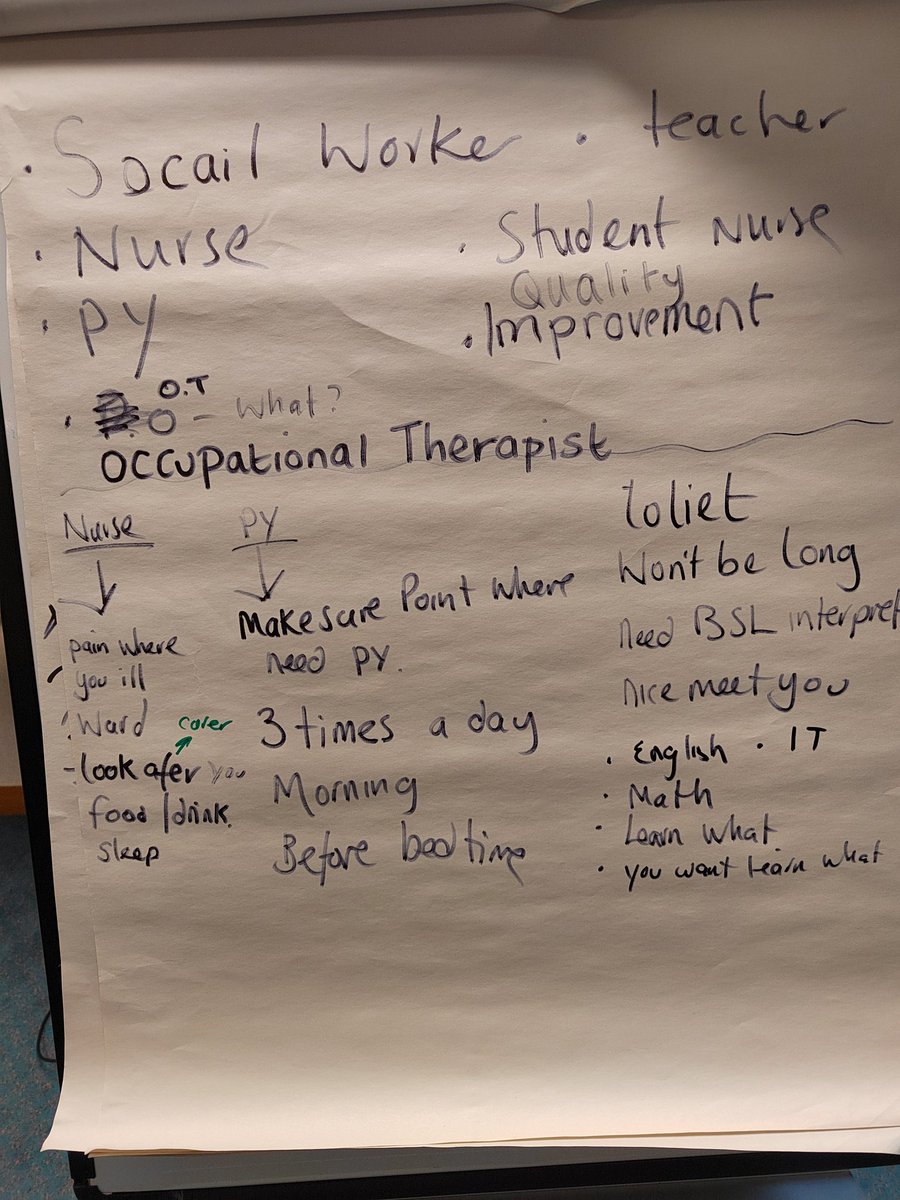 · Socail Worke
· Nurse
· PY
· O.T
O – What?
Occupational Therapist
· teacher
· Student Nurse
Quality
· Improvement
Nurse
pain where
you ill
Ward
- look afer you
carer
food / drink.
Sleep
PY
Make sure Point where
need PY.
3 times a day
Morning
Before bedtime
toliet
Won't be long
need BSL interpret
nice meet you
· English · IT
· Math
· Learn what
· you want learn what